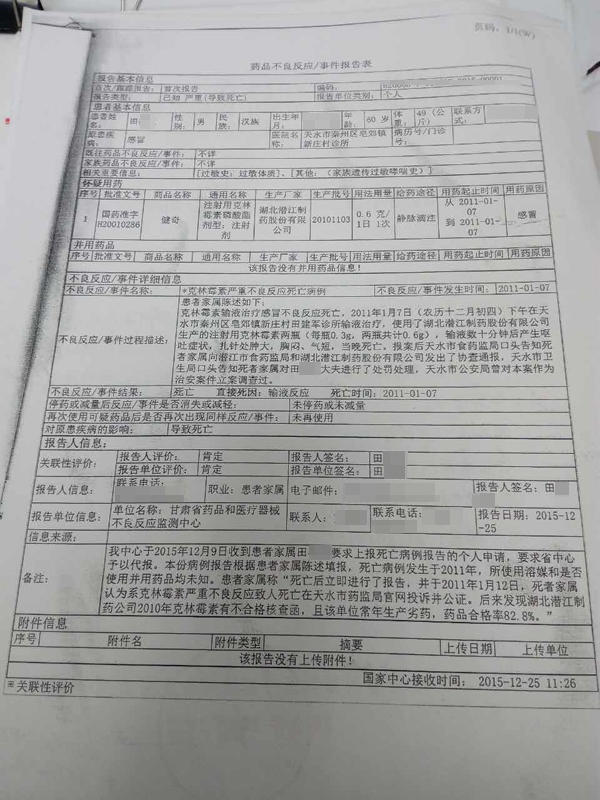 页码：1/1(W)
药品不良反应/事件报告表
报告基本信息
首次/跟踪报告： 首次报告 编码：
报告类型： 已知 严重(导致死亡) 报告单位类别： 个人
患者基本信息
患者姓名： 田 性别： 男 民族： 汉族 出生年月： 年龄： 60 岁 体重： 49（公斤） 联系方式：
原患疾病： 感冒 医院名称： 天水市秦州区皂郊镇新庄村诊所 病历号/门诊号：
既往药品不良反应/事件： 不详
家族药品不良反应/事件： 不详
相关重要信息： [过敏史：过敏体质]、[其他：（家族遗传过敏哮喘史）]
怀疑用药
序号 批准文号 商品名称 通用名称 生产厂家 生产批号 用法用量 给药途径 用药起止时间 用药原因
1 国药准字H20010286 健奇 注射用克林霉素磷酸酯 剂型：注射剂 湖北潜江制药股份有限公司 20101103 0.6 克/1日 1次 静脉滴注 从 2011-01-07 到 2011-01-07 感冒
并用药品
序号 批准文号 商品名称 通用名称 生产厂家 生产批号 用法用量 给药途径 用药起止时间 用药原因
该报告没有并用药品信息！
不良反应/事件详细信息
不良反应/事件名称： *克林霉素严重不良反应死亡病例 不良反应/事件发生时间：2011-01-07
不良反应/事件过程描述：
患者家属陈述如下：
克林霉素输液治疗感冒不良反应死亡，2011年1月7日（农历十二月初四）下午在天
水市秦州区皂郊镇新庄村田建军诊所输液治疗，使用了湖北潜江制药股份有限公司
生产的注射用克林霉素两瓶（每瓶0.3g，两瓶共计0.6g），输液数十分钟后产生呕
吐症状，扎针处肿大，胸闷、气短，当晚死亡。报案后天水市食药监局口头告知死
者家属向潜江市食药监局和湖北潜江制药股份有限公司发出了协查通报，天水市卫
生局口头告知死者家属对田 大夫进行了处罚处理，天水市公安局曾对本案作为
治安案件立案调查过。
不良反应/事件结果： 死亡 直接死因：输液反应 死亡时间：2011-01-07
停药或减量后反应/事件是否消失或减轻： 未停药或未减量
再次使用可疑药品后是否再次出现同样反应/事件： 未再使用
对原患疾病的影响： 导致死亡
报告人信息：
关联性评价： 报告人评价： 肯定 报告人签名： 田
报告单位评价： 肯定 报告单位签名： 田
报告人信息： 联系电话： 职业：患者家属 电子邮件： 报告人签名：田
报告单位信息： 单位名称：甘肃省药品和医疗器械不良反应监测中心 联系人： 联系电话： 报告日期：2015-12-25
信息来源：
备注：
我中心于2015年12月9日收到患者家属田 要求上报死亡病例报告的个人申请，要求省中心
予以代报。本份病例报告根据患者家属陈述填报，死亡病例发生于2011年，所使用溶媒和是否
使用并用药品均未知。患者家属称“死亡后立即进行了报告，并于2011年1月12日，死者家属
认为系克林霉素严重不良反应致人死亡在天水市药监局官网投诉并公证。后来发现湖北潜江制
药公司2010年克林霉素有不合格核查函，且该单位常年生产劣药，药品合格率82.8%。”
附件信息
序号 附件名 附件类型 摘要 上传日期 上传单位
该报告没有上传附件！
国家中心接收时间： 2015-12-25 11:26
※关联性评价